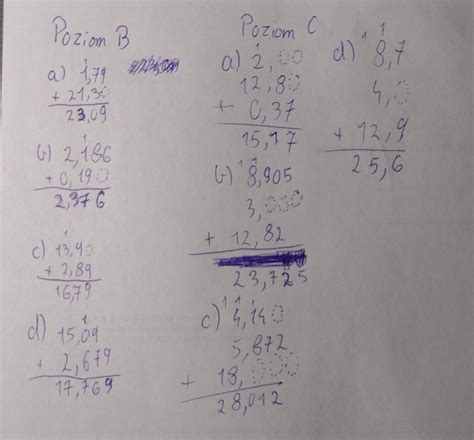 Poziom B
1
a) 1,79
+ 21,30
23,09
1
b) 2,186
+ 0,190
2,376
1
c) 13,90
+ 2,89
16,79
1
d) 15,09
+ 2,679
17,769
Poziom C
1
a) 2,00
12,80
+ 0,37
15,17
1 1
b) 8,905
3,000
+ 12,82
23,725
1 1 1
c) 4,140
5,872
+ 18,000
28,012
1 1
d) 8,7
4,0
+ 12,9
25,6